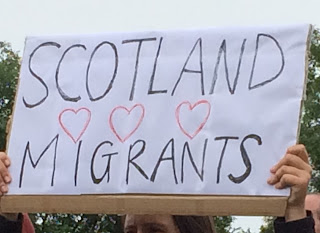 SCOTLAND
♡ ♡ ♡
MIGRANTS